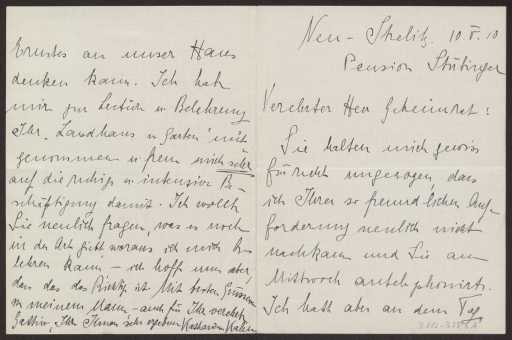 Neu-Strelitz, 10.V.10
Pension Stütinger
Verehrter Herr Geheimrat:
Sie halten mich gewiss
für recht ungezogen, dass
ich Ihrer so freundlichen Auf-
forderung neulich nicht
nachkam und Sie am
Mittwoch antelephonirte.
Ich hatte aber an dem Tag
Ernstes an unser Haus
denken kann. Ich hab
mir zur Lectüre u Belehrung
Ihr "Landhaus u Garten" mit
genommen u freue mich sehr
auf die ruhige u intensive Be-
schäftigung damit. Ich wollte
Sie neulich fragen, was es noch
in der Art giebt woraus ich mich be-
lehren kann – ich hoffe nun aber,
dass das das Richtige ist. Mit besten Grüssen
von meinem Mann – auch für Ihre verehrte
Gattin, Ihr Ihnen sehr ergebene Katharina